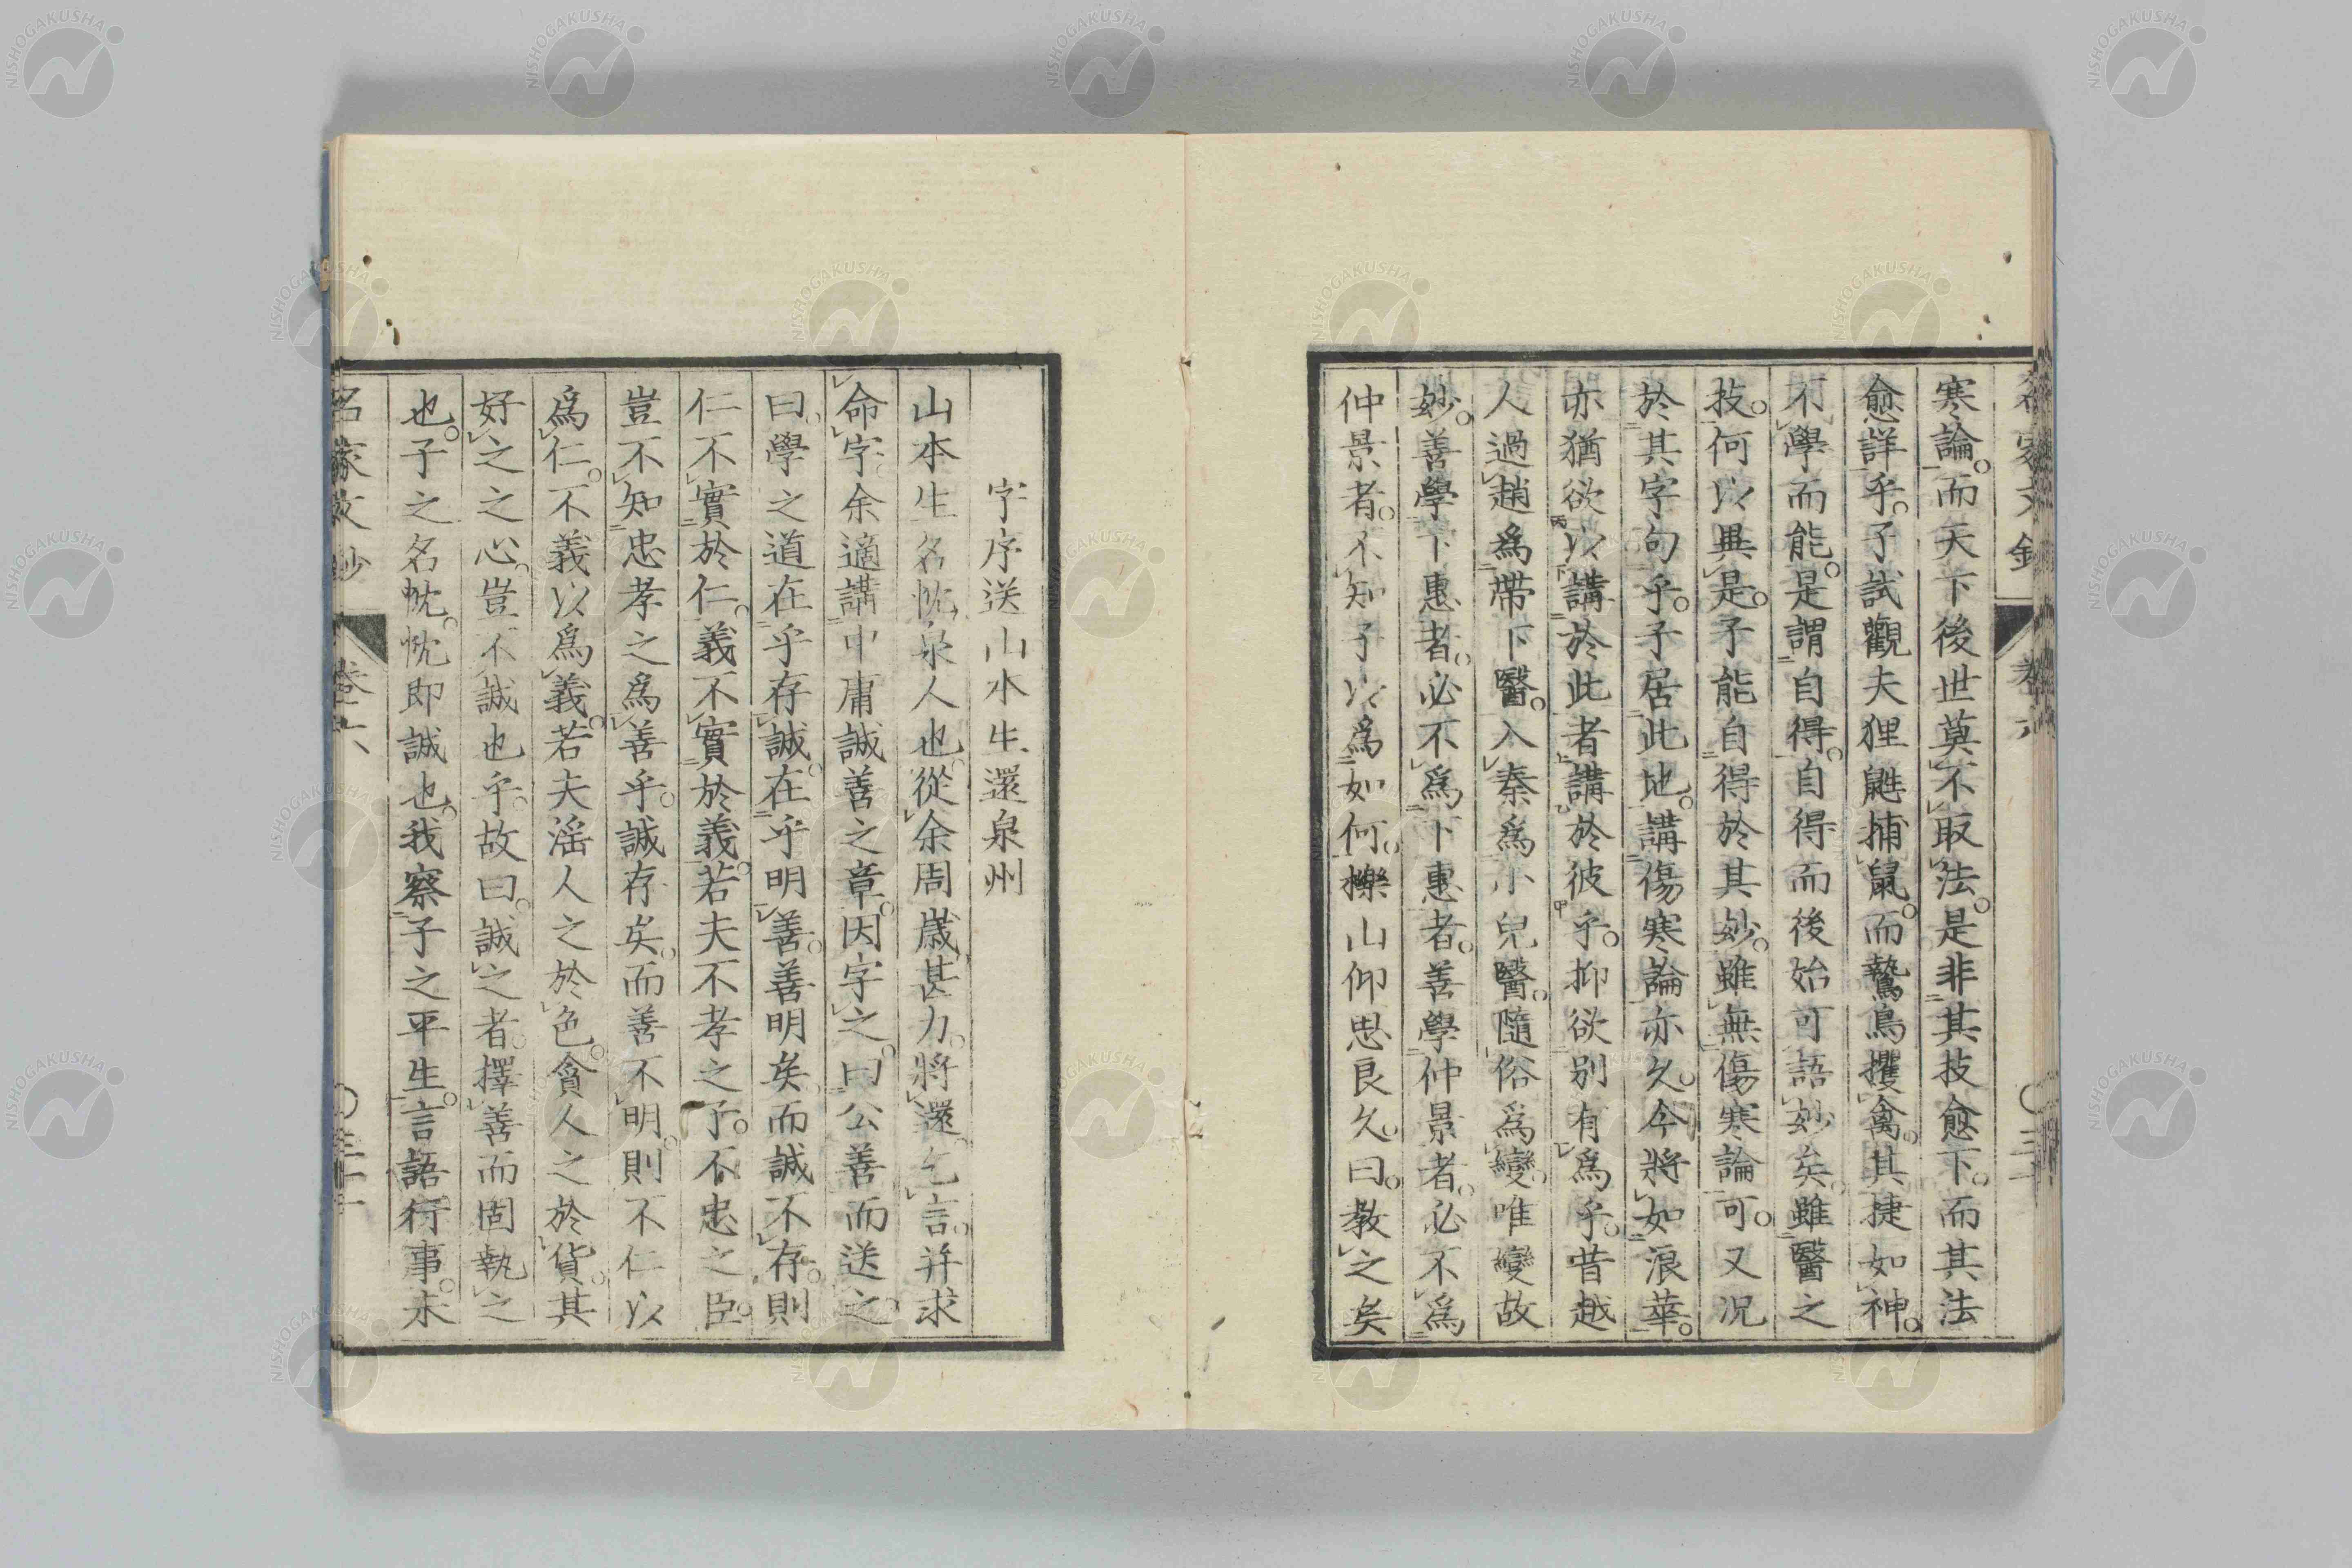 寒論。而天下後世莫不取法。是非其技愈下。而其法
愈詳乎。子試觀夫狸鼪捕鼠。而鷙鳥攫禽。其捷如神。
不學而能。是謂自得。自得而後始可語妙矣。雖醫之
技。何以異是。子能自得於其妙。雖無傷寒論可。又况
於其字句乎。子居此地。講傷寒論亦久。今將如浪華。
亦猶欲以講於此者講於彼乎。抑欲别有爲乎。昔越
人過趙爲帶下醫。入秦爲小兒醫。隨俗爲變。唯變故
妙。善學下惠者。必不爲下惠者。善學仲景者。必不爲
仲景者。不知子以爲如何。櫟山仰思良久。曰。教之矣
字序送山本生還泉州
山本生名忱。泉人也。從余周歲甚力。將還。乞言。并求
命字。余適講中庸誠善之章。因字之。曰公善而送之。
曰。學之道在乎存誠。在乎明善。善明矣。而誠不存。則
仁不實於仁。義不實於義。若夫不孝之子。不忠之臣。
豈不知忠孝之爲善乎。誠存矣。而善不明。則不仁以
爲仁。不義以爲義。若夫淫人之於色。貪人之於貨。其
好之之心。豈不誠也乎。故曰。誠之者。擇善而固執之
也。子之名忱。忱即誠也。我察子之平生。言語行事。未
名家文鈔 卷六
NISHOGAKUSHA